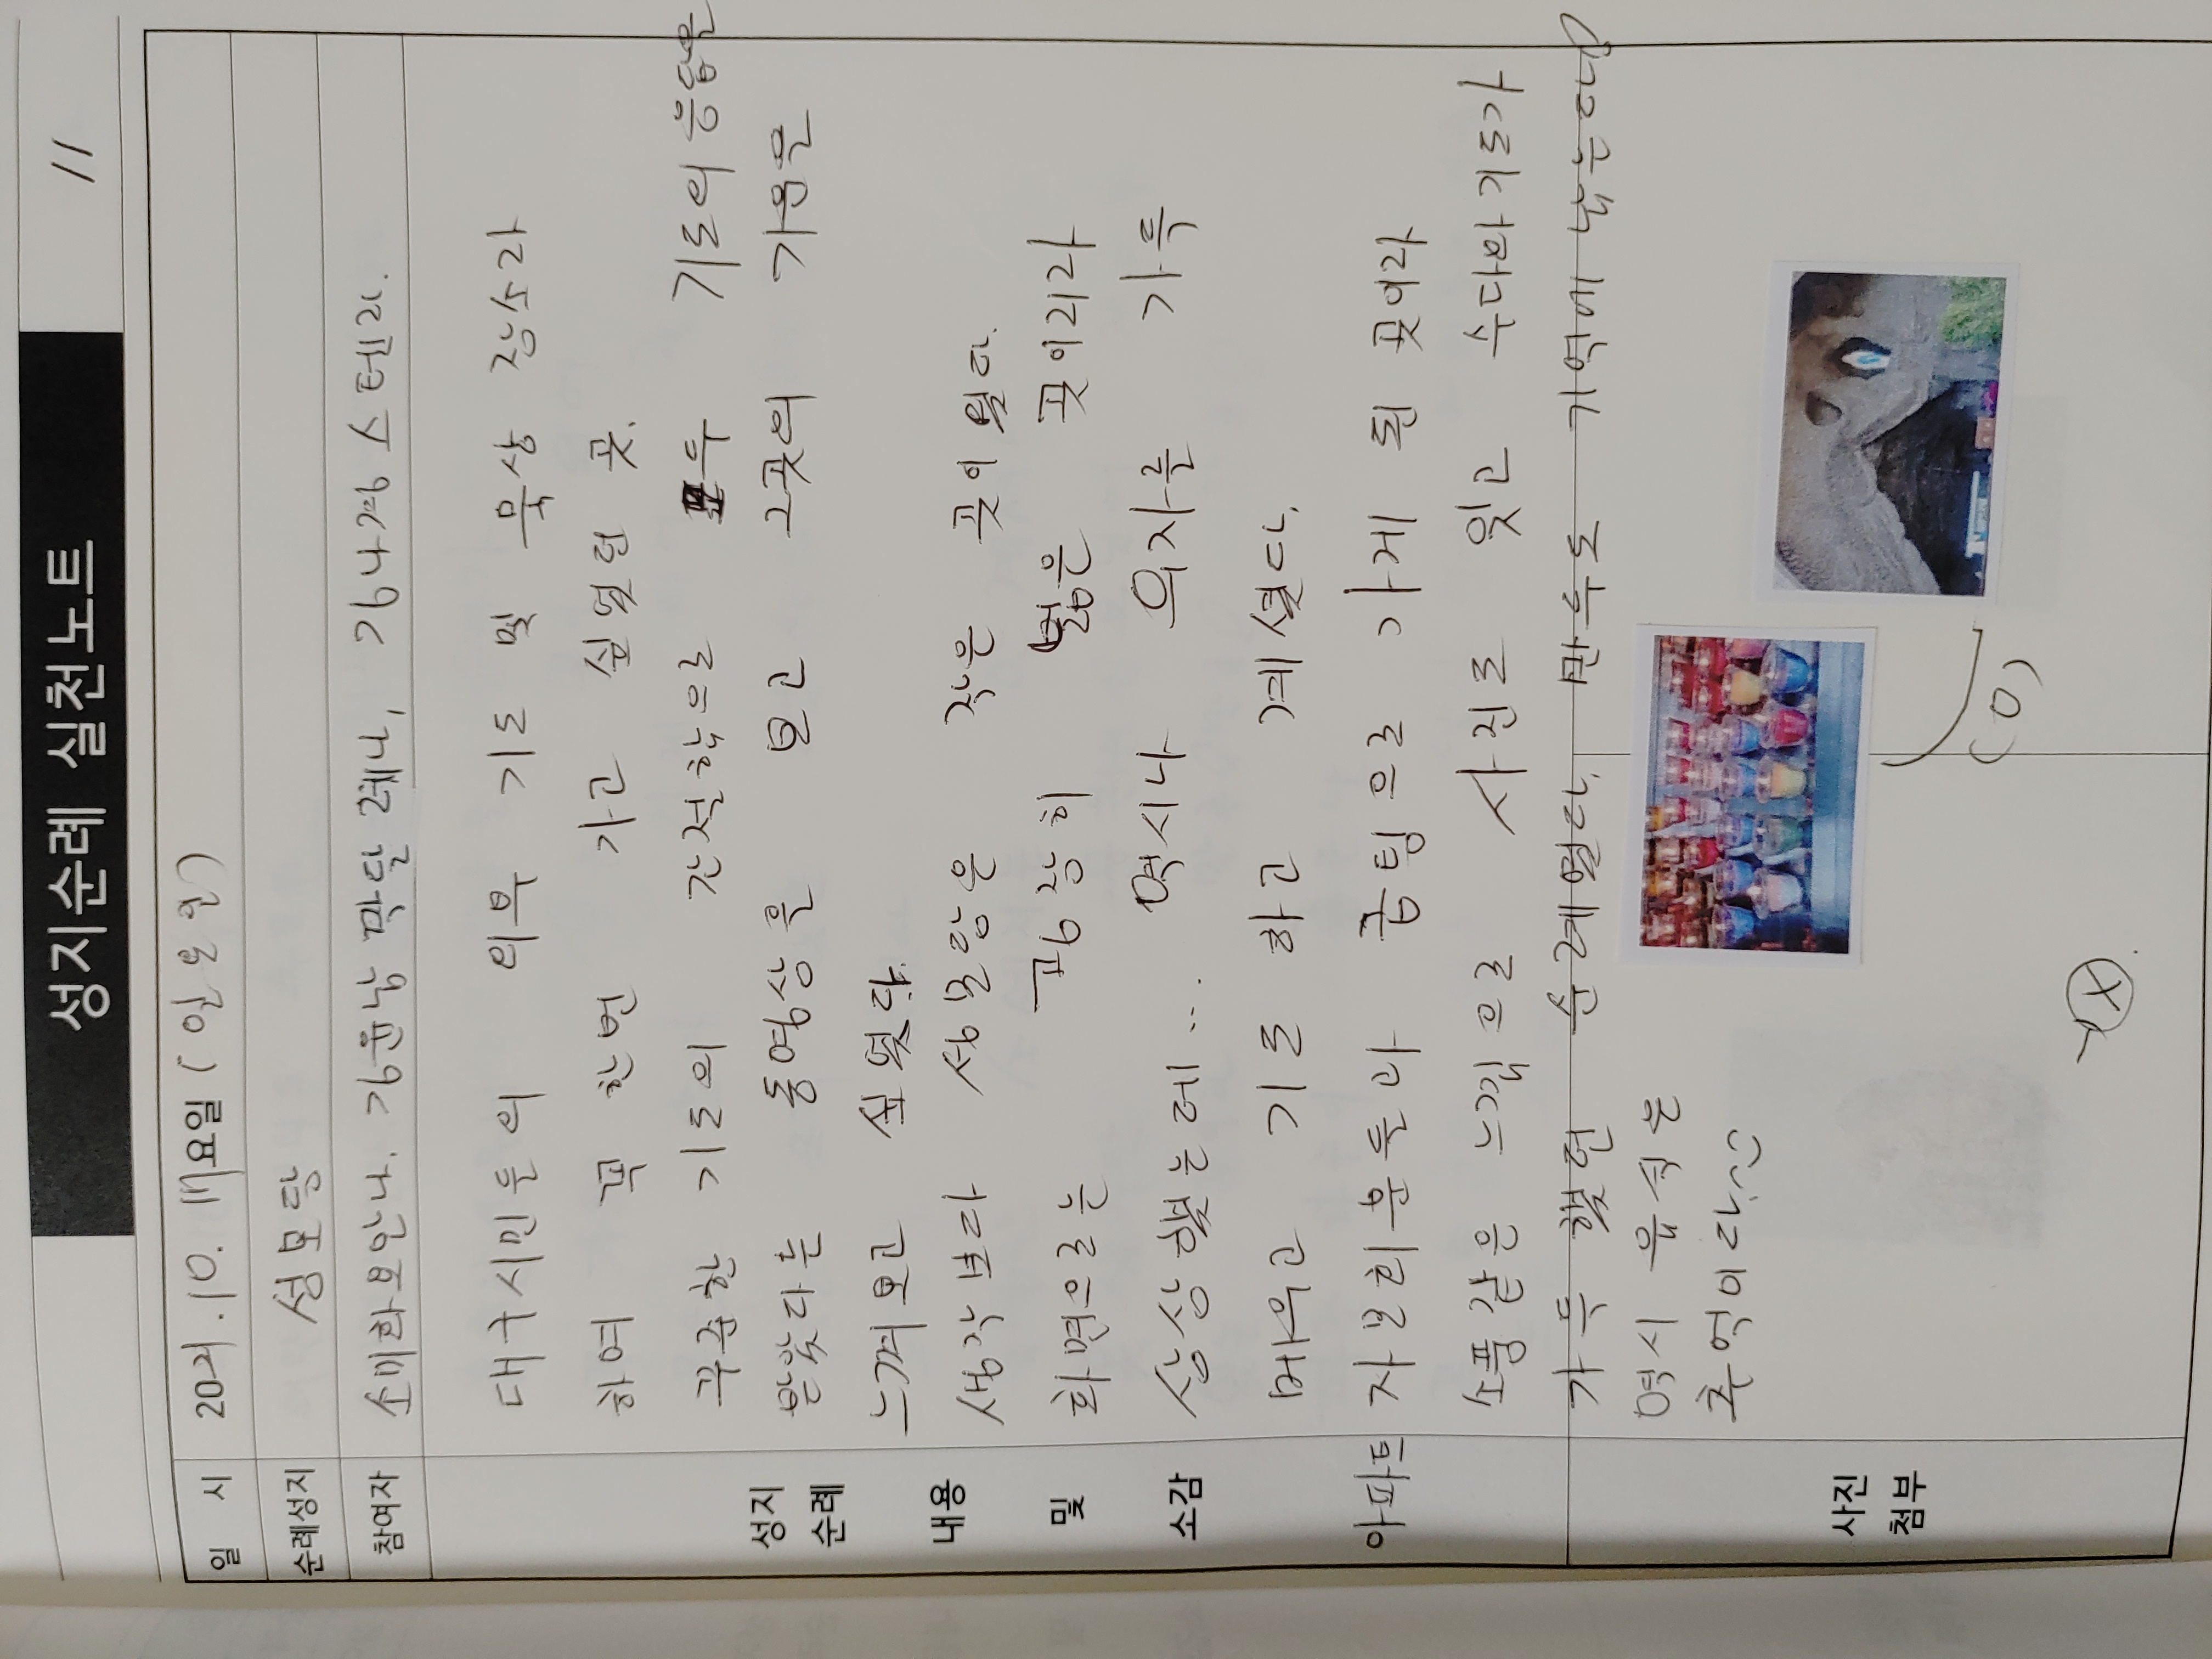 성지순례 실천노트
11
일 시 2021. 10. 17요일 (일요일)
순례성지 성모당
참여자 소미화요안나. 김윤남 막달레나, 김나경 스텔라.
성지
순례
내용
및
소감
대구시민들의 외부 기도 및 묵상 장소라
하여 꼭 한번 가고 싶었던 곳.
꾸준한 기도의 간절함으로 후 기도의 응답을
받았다는 동영상을 보고 그곳의 기운을
느껴보고 싶었다.
생각보다 성모당은 작은 곳이였다.
화면으로는 굉장히 넓은 곳이리라
상상했는데... 역시나 의자를 가득
메우고 기도 하고 계셨다.
아파트 자모회분들과 급팀으로 가게 된 곳이라
소풍같은 느낌으로 사진도 찍고 수다와 기도가
가득했던 순례였다. 만우도 기억에 남는다
역시 음식은
추억이다.^^
사진
첨부
(O)